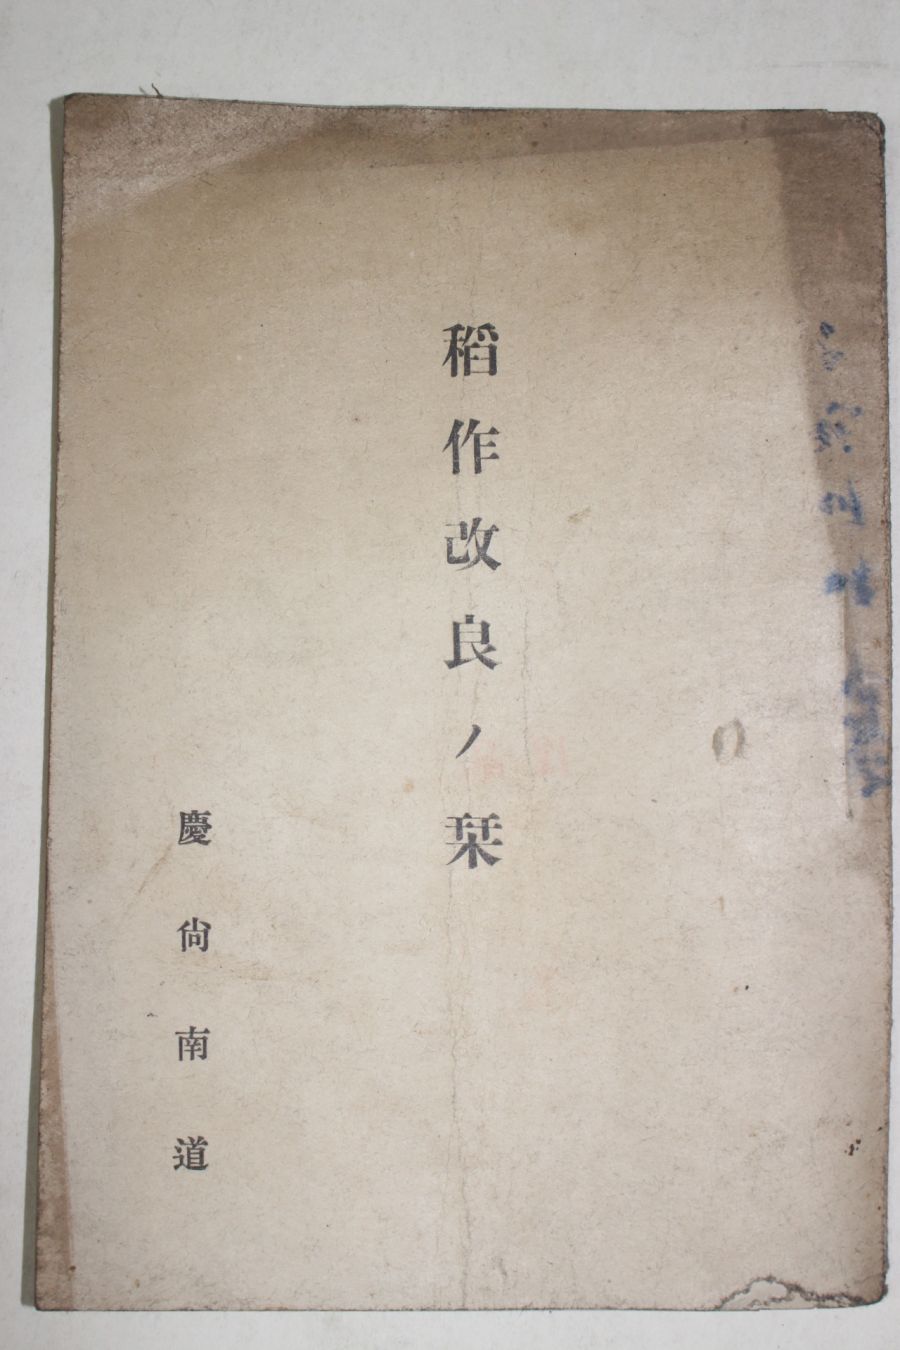 稻作改良ノ栞
慶尙南道